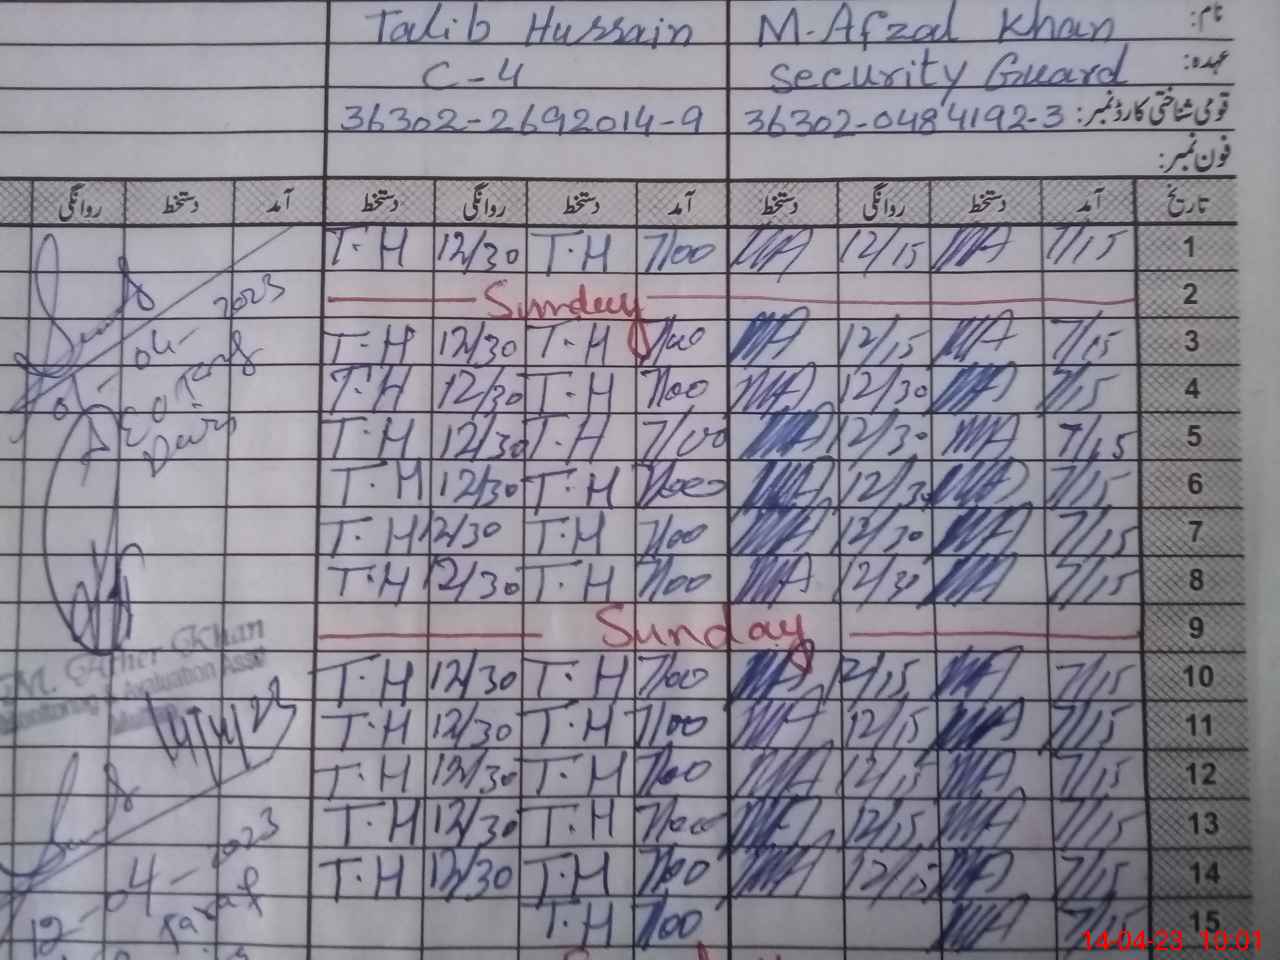 نام: M. Afzal Khan Talib Hussain
عہدہ: Security Guard C-4
قومی شناختی کارڈ نمبر: 36302-0484192-3 36302-2692014-9
فون نمبر:
تاریخ آمد دستخط روانگی دستخط آمد دستخط روانگی دستخط آمد دستخط روانگی
1 7/15 MA 12/15 MA 7/00 T.H 12/30 T.H
2 Sunday
3 7/15 MA 12/15 MA 7/00 T.H 12/30 T.H
4 7/15 MA 12/30 MA 7/00 T.H 12/30 T.H
5 7/15 MA 12/30 MA 7/00 T.H 12/30 T.H
6 7/15 MA 12/30 MA 7/00 T.H 12/30 T.H
7 7/15 MA 12/30 MA 7/00 T.H 12/30 T.H
8 7/15 MA 12/30 MA 7/00 T.H 12/30 T.H
9 Sunday
10 7/15 MA 12/15 MA 7/00 T.H 12/30 T.H
11 7/15 MA 12/15 MA 7/00 T.H 12/30 T.H
12 7/15 MA 12/15 MA 7/00 T.H 12/30 T.H
13 7/15 MA 12/15 MA 7/00 T.H 12/30 T.H
14 7/15 MA 12/15 MA 7/00 T.H 12/30 T.H
15 7/15 MA 7/00 T.H
04-2023
M. Ather Khan
Monitoring & Evaluation Asstt
Multan
14/4/23
12-04-2023
14-04-23 10:01